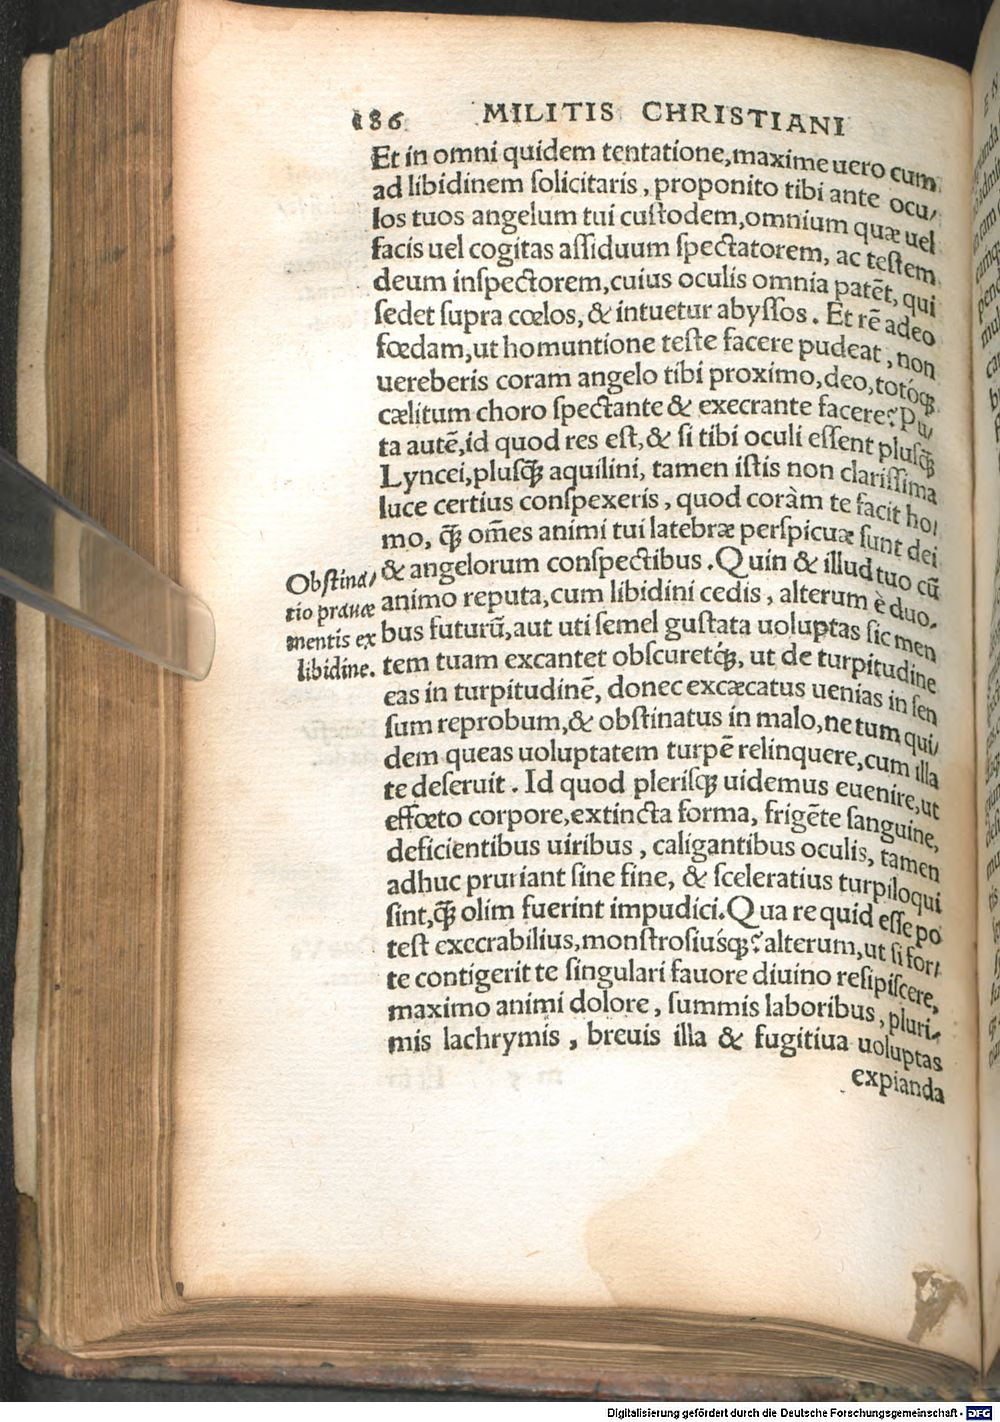 186 MILITIS CHRISTIANI
Et in omni quidem tentatione,maxime uero cum
ad libidinem ſolicitaris, proponito tibi ante ocu/
los tuos angelum tui cuſtodem,omnium quæ uel
facis uel cogitas aſſiduum ſpectatorem, ac teſtem
deum inſpectorem,cuius oculis omnia patẽt, qui
ſedet ſupra cœlos, & intuetur abyſſos. Et rẽ adeo
fœdam,ut homuntione teſte facere pudeat, non
uereberis coram angelo tibi proximo,deo,totóqꝫ
cælitum choro ſpectante & execrante facere? Pu/
ta autẽ,id quod res eſt,& ſi tibi oculi eſſent pluſq̃ꝫ
Lyncei,pluſq̃ꝫ aquilini, tamen iſtis non clariſſima
luce certius conſpexeris, quod coràm te facit ho/
mo, q̃ꝫ om̃es animi tui latebræ perſpicuæ ſunt dei
& angelorum conſpectibus. Quin & illud tuo cũ
animo reputa,cum libidini cedis, alterum è duo/
bus futurũ,aut uti ſemel guſtata uoluptas ſic men
tem tuam excantet obſcuretqꝫ́, ut de turpitudine
eas in turpitudinẽ, donec excæcatus uenias in ſen
ſum reprobum,& obſtinatus in malo,ne tum qui/
dem queas uoluptatem turpẽ relinquere,cum illa
te deſeruit. Id quod pleriſqꝫ uidemus euenire,ut
effœto corpore,extincta forma, frigẽte ſanguine,
deficientibus uiribus, caligantibus oculis, tamen
adhuc pruriant ſine fine, & ſceleratius turpiloqui
ſint,q̃ꝫ olim fuerint impudici. Qua re quid eſſe po
teſt execrabilius,monſtroſiúsqꝫ? alterum,ut ſi for/
te contigerit te ſingulari fauore diuino reſipiſcere,
maximo animi dolore, ſummis laboribus, pluri/
mis lachrymis, breuis illa & fugitiua uoluptas
expianda
Obſtina/
tio prauæ
mentis ex
libidine.
Digitalisierung gefördert durch die Deutsche Forschungsgemeinschaft - DFG